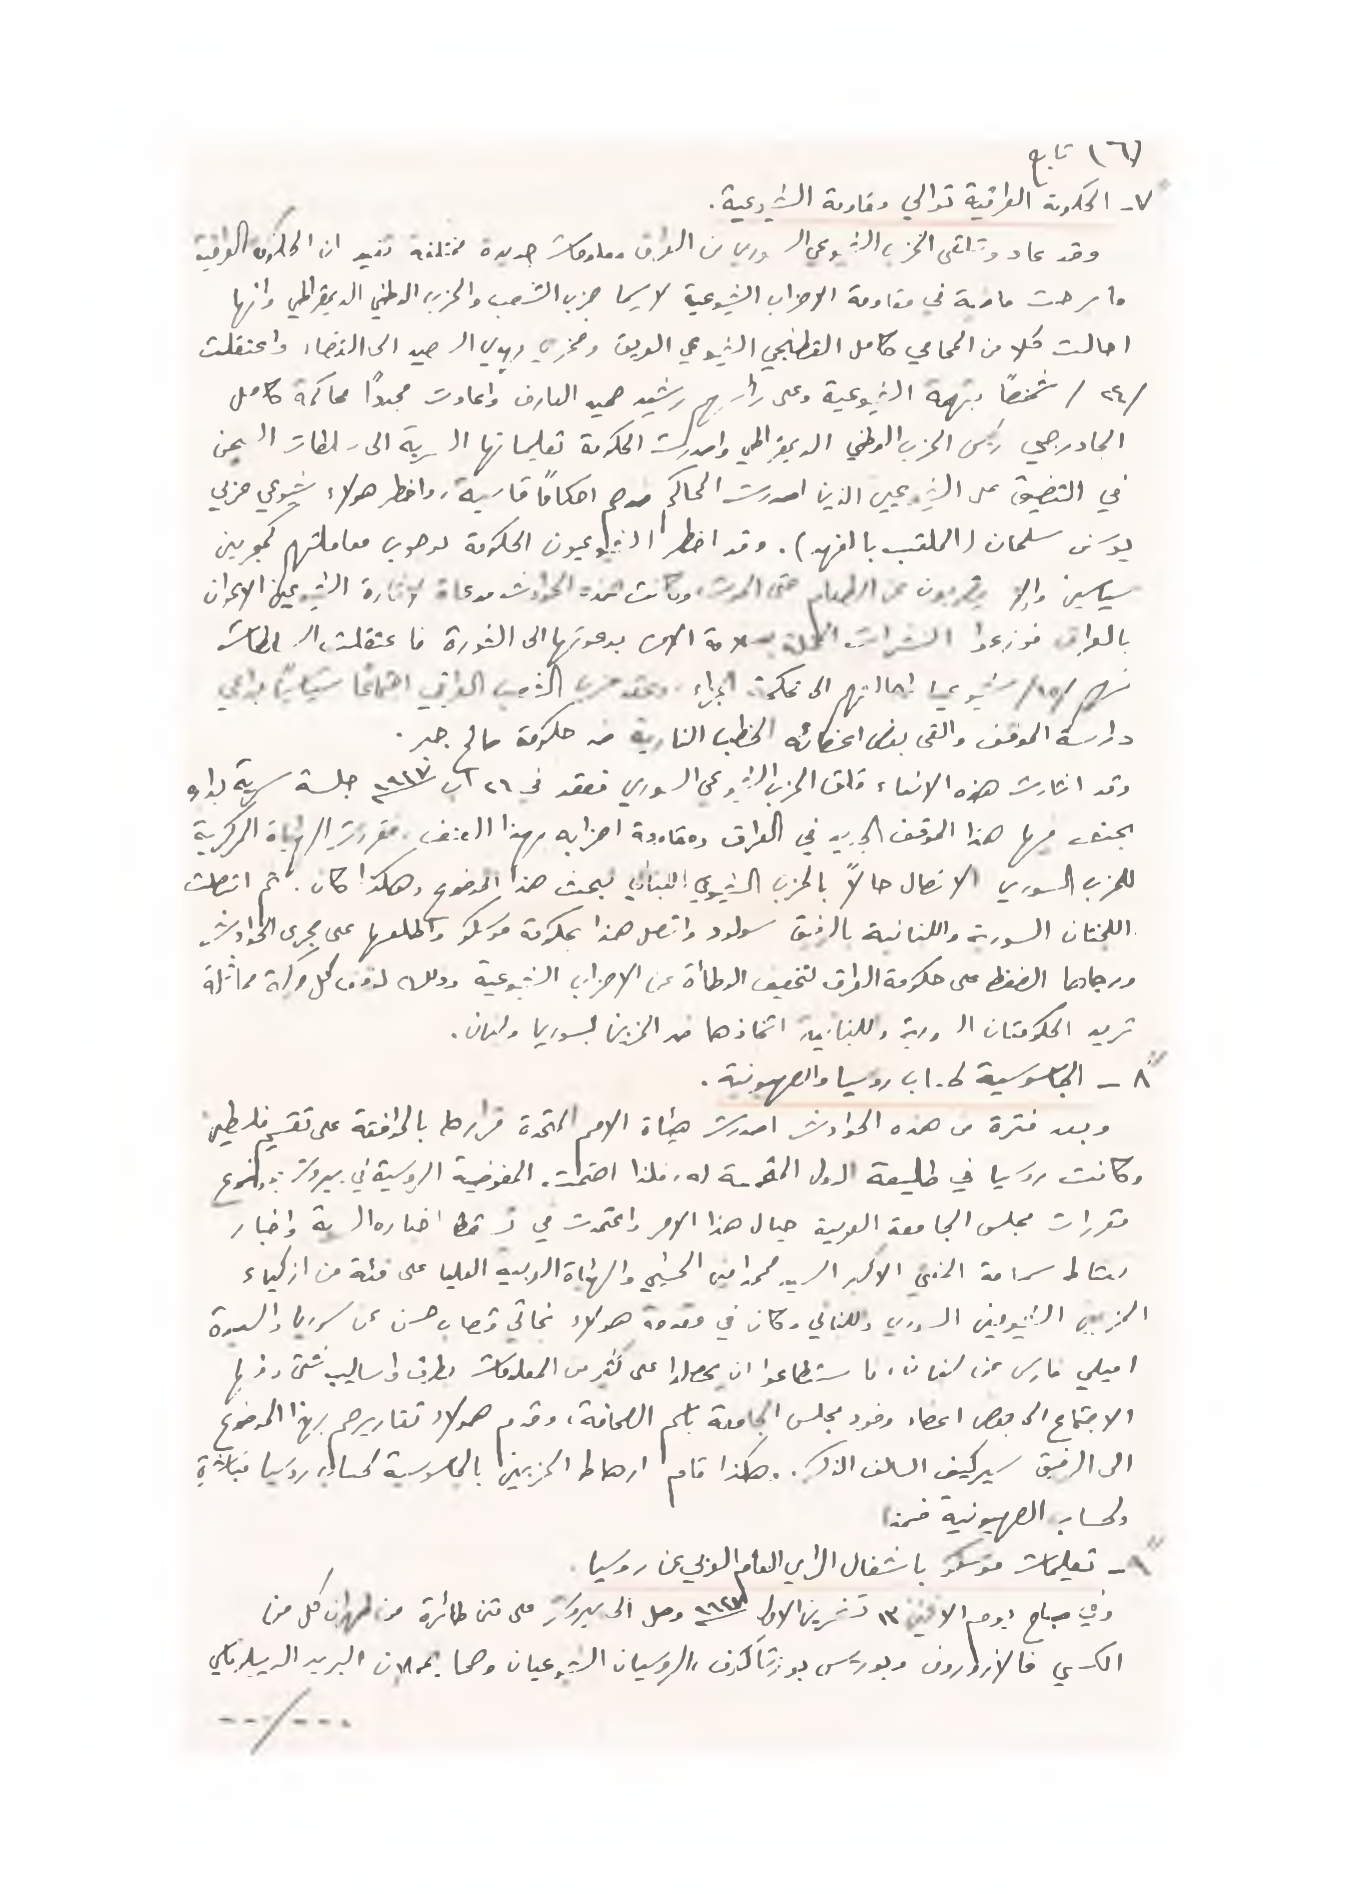 (٦) تابع
٧- الحكومة العراقية توالي مقاومة الشيوعية.
وقد عاد وتلقى الحزب الشيوعي السوري من العراق معلومات جديدة مختلفة تفيد ان الحكومة العراقية
ما برحت ماضية في مقاومة الاحزاب الشيوعية لا سيما حزب الشعب والحزب الوطني الديمقراطي وانها
احالت كلا من المحامي كامل القطنجي الشيوعي العريق الى القضاء واعتقلت
/٢٤/ شخصاً بتهمة الشيوعية وعلى رأسهم رشيد حميد العارف واعادت مجدداً محاكمة كامل
الجادرجي رئيس الحزب الوطني الديمقراطي واصدرت الحكومة تعليماتها السرية الى سلطات السجن
في التضييق على الشيوعيين الذين اصدرت المحاكم ضدهم احكاماً قاسية، واخطر هولاء شيوعي حزبي
يوسف سلمان (الملقب بالفهد). وقد اخطر الشيوعيون الحكومة لوجوب معاملتهم كمجرمين
سياسيين والا يضربون عن الطعام حتى الموت، وكانت هذه الحوادث مدعاة لاثارة الشيوعيين الاعوان
بالعراق فوزعوا النشرات المخلة بسلامة الامن بدعوتها الى الثورة فاعتقلت السلطات
منهم /١٥/ شيوعيا احالتهم الى محكمة الجزاء، وعقد حزب الشعب العراقي اجتماعا سياسياً بداعي
دراسة الموقف والقى بعض اعضائه الخطب النارية ضد حكومة صالح جبر.
وقد اثارت هذه الانباء قلق الحزب الشيوعي السوري فعقد في ٢٦ آب ١٩٤٧ جلسة سرية بداره
بحث فيها هذا الموقف الجديد في العراق ومقاومة احزابه بهذا العنف، فقررت الهيأة المركزية
للحزب السوري الاتصال حالاً بالحزب الشيوعي اللبناني لبحث هذا الموضوع وهكذا كان. ثم اتصلت
اللجنتان السورية واللبنانية بالرفيق سولود واتصل هذا بحكومة موسكو واطلعها على مجرى الحوادث
ورجاهما الضغط على حكومة العراق لتخفيف الوطأة عن الاحزاب الشيوعية وذلك لوقف كل حركة مماثلة
تريد الحكومتان السورية واللبنانية اتخاذهما ضد الحزبين لسوريا ولبنان.
٨- الجاسوسية لحساب روسيا والصهيونية.
وبعد فترة من هذه الحوادث اصدرت هيأة الامم المتحدة قرارها بالموافقة على تقسيم فلسطين
وكانت روسيا في طليعة الدول المقسمة له، فلذا اهتمت المفوضية الروسية في بيروت بموضوع
مقررات مجلس الجامعة العربية حيال هذا الامر واعتمدت في تسقط اخباره السرية واخبار
نشاط سماحة المفتي الاكبر السيد محمد امين الحسيني والهيأة العربية العليا على فئة من ازكياء
الحزبين الشيوعيين السوري واللبناني وكان في مقدمة هولاء نجاتي قصاب حسن عن سوريا والسيدة
اميلي فارس عن لبنان، فاستطاعوا ان يحصلوا على كثير من المعلومات بطرق واساليب شتى منها
الاجتماع الى بعض اعضاء وفود مجلس الجامعة باسم الصحافة، وقدم هولاء تقاريرهم بهذا الموضوع
الى الرفيق سيركيف السالف الذكر. وهكذا قام ارهاط الحزبين بالجاسوسية لحساب روسيا مباشرة
ولحساب الصهيونية ضمنا
٩- تعليمات موسكو باشغال الراي العام العربي عن روسيا.
وفي صباح يوم الاثنين ١٣ تشرين الاول ١٩٤٧ وصل الى بيروت على متن طائرة من طهران كل من
الكسي فالازوروف وبوريس بوزتأكوف، الروسيان الشيوعيان وهما يحملان البريد الدبلوماسي
---/---